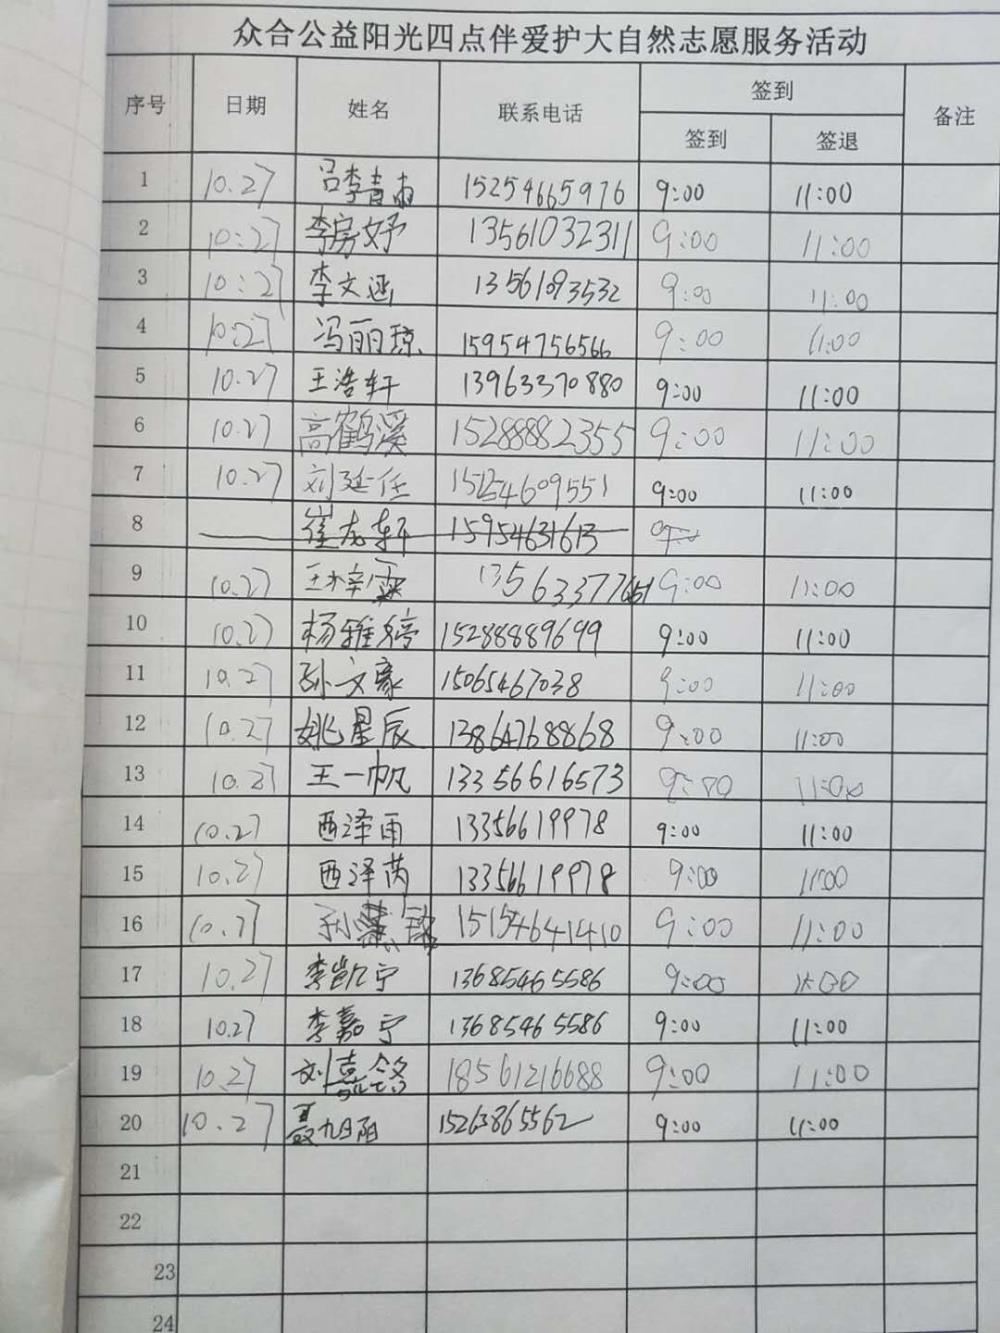 众合公益阳光四点伴爱护大自然志愿服务活动
序号 日期 姓名 联系电话 签到 备注
签到 签退
1 10.27 吕李青雨 15254665976 9:00 11:00
2 10:27 李房妤 13561032311 9:00 11:00
3 10:27 李文涵 13561093532 9:00 11:00
4 10:27 冯丽琼 15954756566 9:00 11:00
5 10.27 王浩轩 13963370880 9:00 11:00
6 10.27 高鹤溪 15288882355 9:00 11:00
7 10.27 刘延任 15254609551 9:00 11:00
8 崔龙轩 15954631613
9 10.27 王梓霖 9:00 11:00
10 10.27 杨雅婷 15288889699 9:00 11:00
11 10.27 孙文豪 15065467038 9:00 11:00
12 10.27 姚星辰 13864768868 9:00 11:00
13 10.27 王一帆 13356616573 9:00 11:00
14 10.27 西泽雨 13356619978 9:00 11:00
15 10.27 西泽芮 13356619978 9:00 11:00
16 10.27 15154641410 9:00 11:00
17 10.27 李凯宁 13685465586 9:00 11:00
18 10.27 李嘉宁 13685465586 9:00 11:00
19 10.27 18561216688 9:00 11:00
20 10.27 聂旭阳 15263865562 9:00 11:00
21
22
23
24